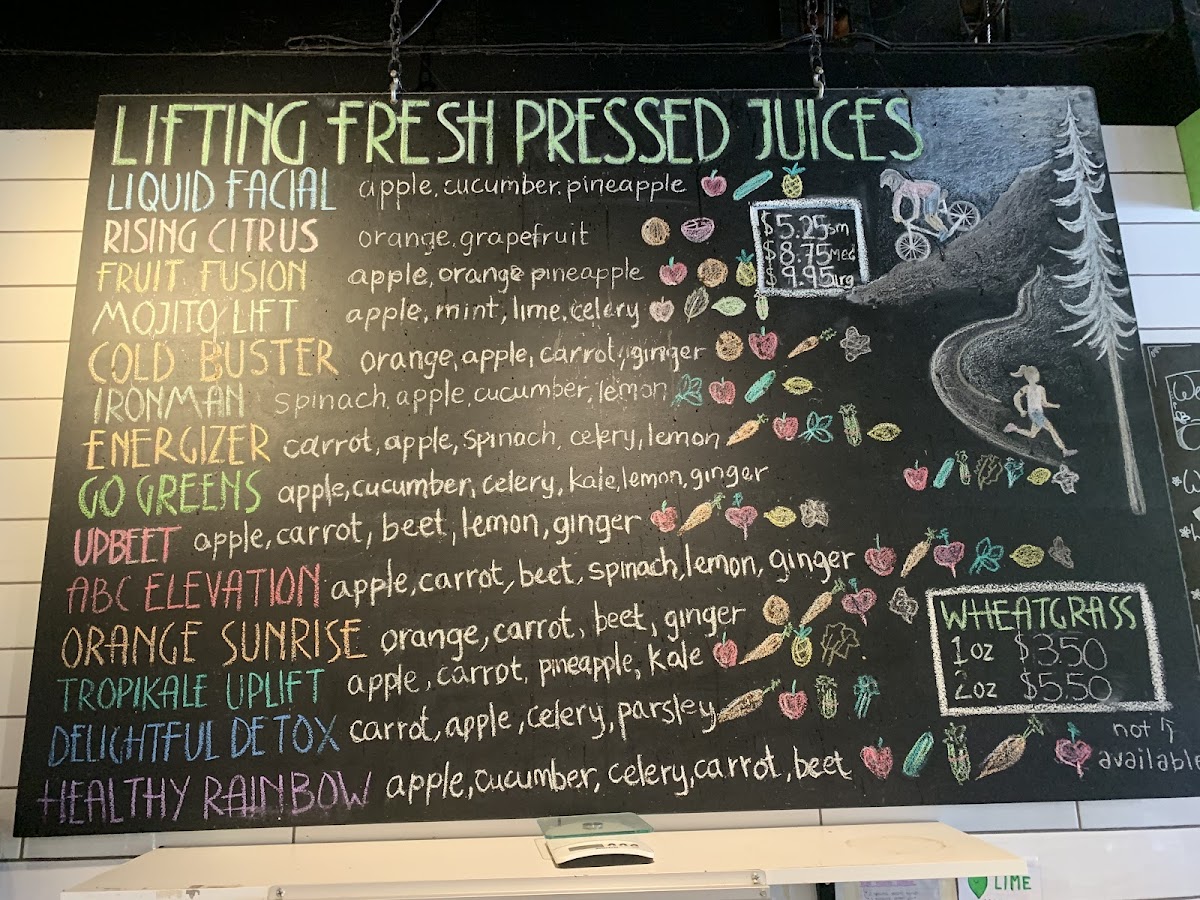 LIFTING FRESH PRESSED JUICES
LIQUID FACIAL apple, cucumber, pineapple
RISING CITRUS orange, grapefruit
$5.25 sm
$8.75 med
$9.95 lrg
FRUIT FUSION apple, orange pineapple
MOJITO LIFT apple, mint, lime, celery
COLD BUSTER orange, apple, carrot, ginger
IRONMAN spinach apple, cucumber, lemon
ENERGIZER carrot, apple, spinach, celery, lemon
GO GREENS apple, cucumber, celery, kale, lemon, ginger
UPBEET apple, carrot, beet, lemon, ginger
ABC ELEVATION apple, carrot, beet, spinach, lemon, ginger
ORANGE SUNRISE orange, carrot, beet, ginger
TROPIKALE UPLIFT apple, carrot, pineapple, kale
DELIGHTFUL DETOX carrot, apple, celery, parsley
HEALTHY RAINBOW apple, cucumber, celery, carrot, beet
WHEATGRASS
1oz $3.50
2oz $5.50
not
available
LIME